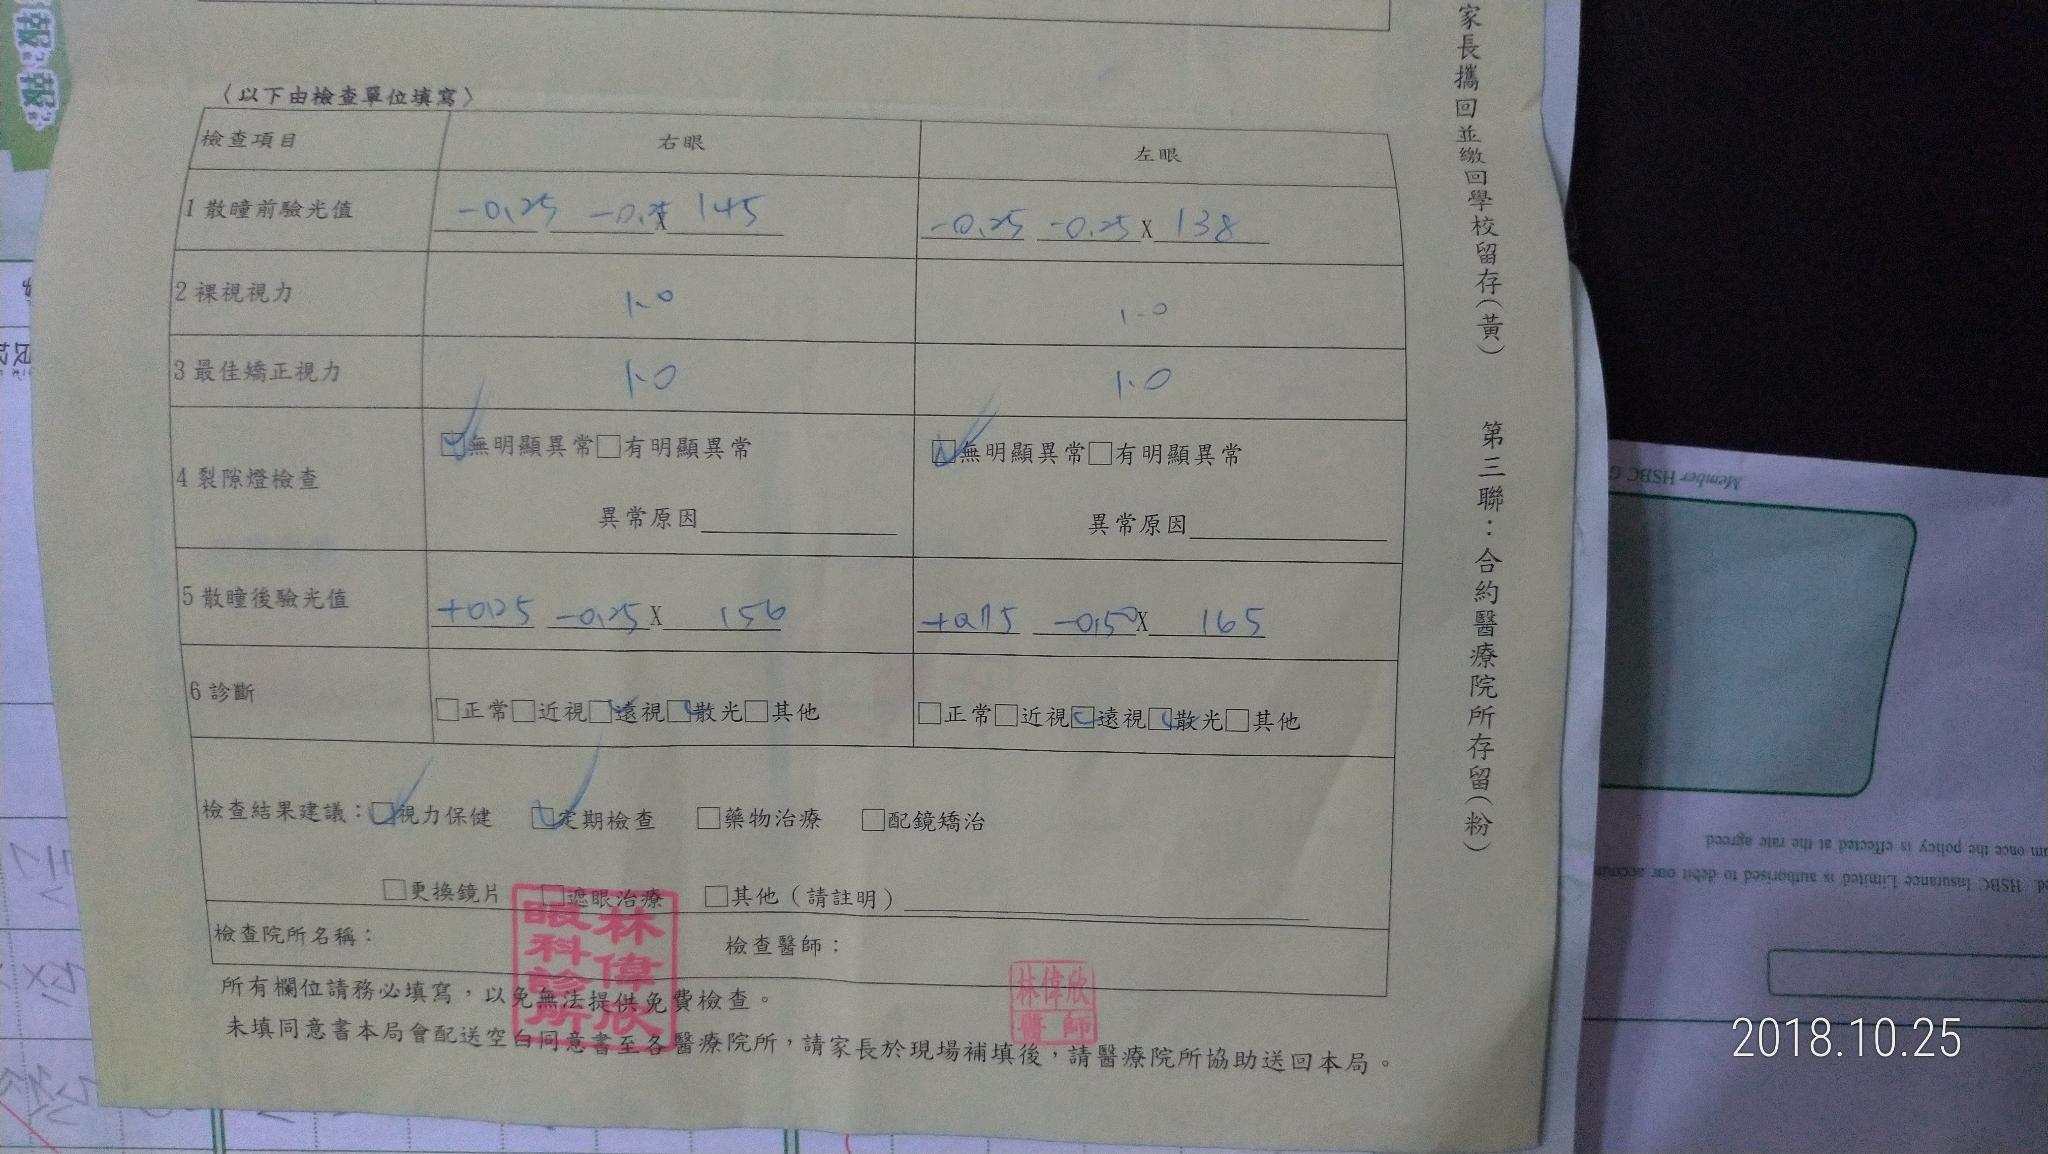 報報
〈以下由檢查單位填寫〉
檢查項目 右眼 左眼
1 散瞳前驗光值 -0.25 -0.25 X 145 -0.25 -0.25 X 138
2 裸視視力 1.0 1.0
3 最佳矯正視力 1.0 1.0
4 裂隙燈檢查 □無明顯異常□有明顯異常 □無明顯異常□有明顯異常
異常原因 異常原因
5 散瞳後驗光值 +0.25 -0.25 X 156 -0.50 X 165
6 診斷 □正常□近視□遠視□散光□其他 □正常□近視□遠視□散光□其他
檢查結果建議：□視力保健 □定期檢查 □藥物治療 □配鏡矯治
□更換鏡片 □遮眼治療 □其他（請註明）
檢查院所名稱： 檢查醫師：
林偉欣眼科診所
林偉欣醫師
所有欄位請務必填寫，以免無法提供免費檢查。
未填同意書本局會配送空白同意書至各醫療院所，請家長於現場補填後，請醫療院所協助送回本局。
家長攜回並繳回學校留存（黃） 第三聯：合約醫療院所存留（粉）
Member HSBC G
um once the policy is effected at the rate agreed
d. HSBC Insurance Limited is authorised to debit our accoun
2018.10.25